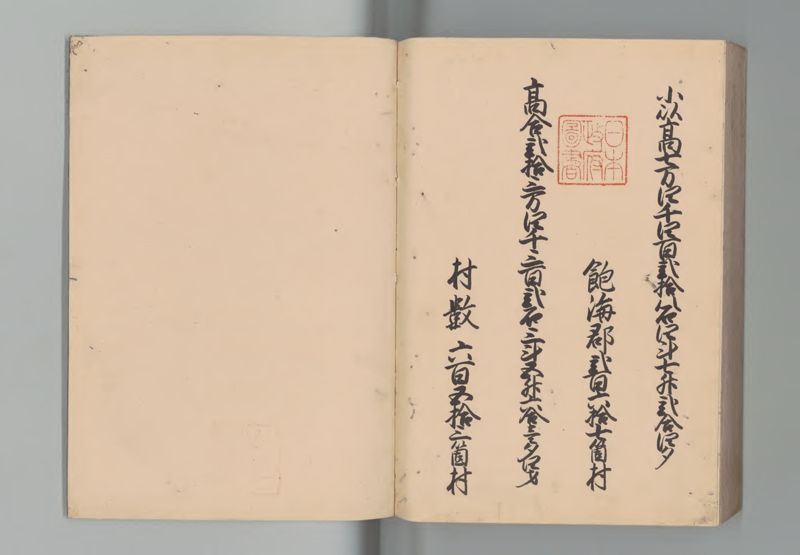 小以高七万四千四百弐拾八石四斗七升弐合四夕
飽海郡弐百六拾七箇村
日本
政府
図書
高合弐拾三万四千三百弐石三斗五升六合三夕四才
村数六百五拾三箇村